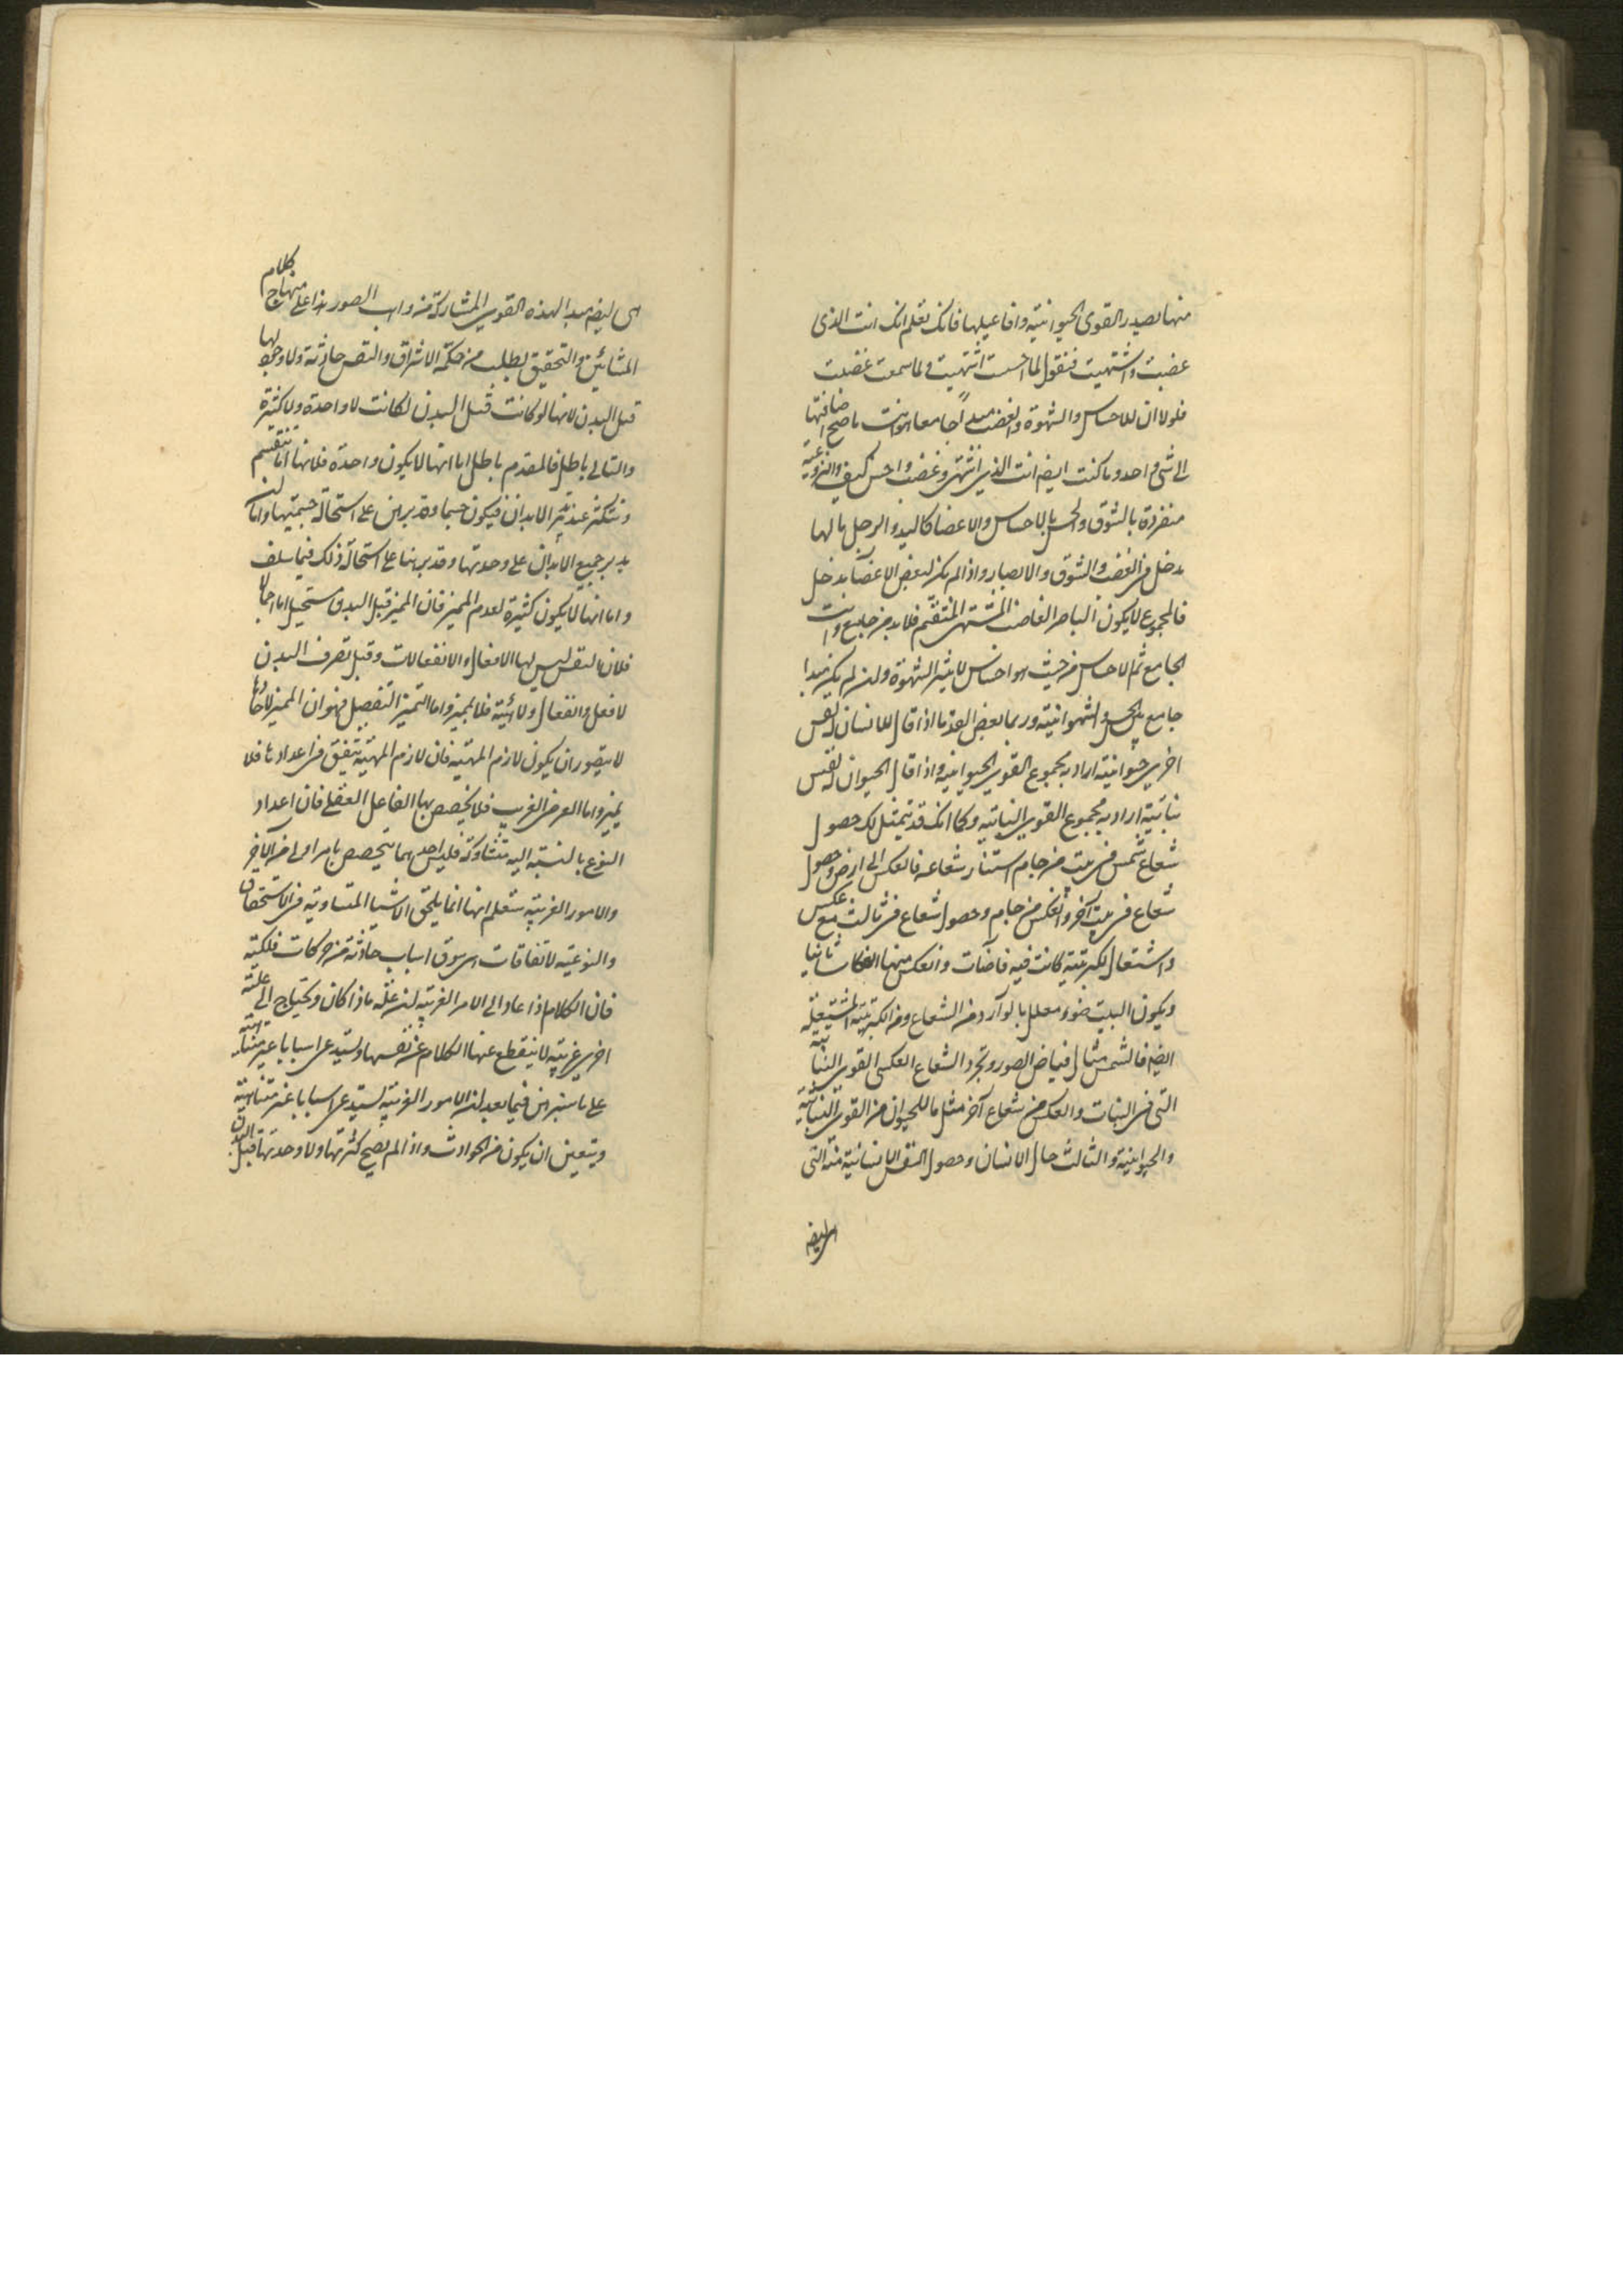 منها يصدر القوى الحيوانية وافاعيلها فانك تعلم انك انت الذى
غضبت واشتهيت فتقول لما احسست اشتهيت ولما سمعت غضبت
فلولا ان للاحساس والشهوة والغضب مبدأ جامعا هو انت ما صح اضافتها
الى شئ واحد وما كنت ايضا انت الذى اشتهى وغضب واحس كيف والنزوعية
منفردة بالشوق والحس بالاحساس والاعضا كاليد والرجل مالها
مدخل فى الغضب والشوق والابصار واذا لم يكن لبعض الاعضا مدخل
فالمجموع لا يكون الباصر الغاضب المشتهى المنتقم فلا بد من جامع وانت
الجامع ثم الاحساس من حيث هو احساس لا يثير الشهوة ولن لم يكن مبدا
جامع بين الحس والشهوانية وربما بعض القدما اذا قال للانسان نفس
اخرى حيوانية اراد به مجموع القوى الحيوانية واذا قال الحيوان له نفس
نباتية اراد به مجموع القوى النباتية وكما انك قد يتمثل لك حصول
شعاع شمس فى بيت من جام استنار شعاعه فانعكس الى ارض وحصول
شعاع فى بيت آخر وانعكس من جام وحصول شعاع فى ثالث مع عكس
واشتعال لكبريتية كانت فيه فاضات وانعكس منها انعكاسا ثانيا
ويكون البيت ضوء معلل بالوارد من الشعاع ومن الكبريتية المشتعلة
ايضا فالشمس مثال فياض الصور وتجرد الشعاع العكسى القوى النباتية
التى فى النبات والعكس من شعاع آخر مثل ما للحيوان من القوى النباتية
والحيوانية والثالث حال الانسان وحصول النفس الانسانية منه التى
هى ايضا
هى ايضا مبدا لهذه القوى المشاركة من واهب الصور هذا على منهاج كلام
المشائين والتحقيق يطلب من حكمة الاشراق والنفس حادثة ولا وجود لها
قبل البدن لانها لو كانت قبل البدن لكانت لا واحدة ولا كثيرة
والتالى باطل فالمقدم باطل اما انها لا يكون واحدة فلانها اما تنقسم
وتتكثر عند تدبر الابدان فيكون جسما وقد برهن على استحالة جسميتها واما ان
يدبر جميع الابدان على وحدتها وقد برهنا على استحالة ذلك فيما سلف
واما انها لا يكون كثيرة لعدم المميز فان المميز قبل البدن مستحيل اما اجمالا
فلان النفس ليس لها الا افعال والانفعالات وقبل تصرف البدن
لا فعل وانفعال ولا هيئة فلا مميز واما التميز التفصيل فهو ان المميز لاحاد
لا يتصور ان يكون لازم المهية فان لازم المهية يتفق فى اعدادها فلا
يميز واما العرض الغريب فلا يخصص بها الفاعل العقلى فان اعداد
النوع بالنسبة اليه متساوية فليس احدهما يتخصص بامر اولى من الآخر
والامور الغريبة ستعلم انها انما يلحق الاشيا المتساوية فى الاستحقاق
والنوعية لاتفاقات هى سوق اسباب حادثة من حركات فلكية
فان الكلام اذا عاد الى الامر الغريبة لن علة ماذا كان ويحتاج الى علة
اخرى غريبة لا ينقطع عنها الكلام عن نفسها ويستدعى اسبابا غير متناهية
على ما سنبرهن فيما بعد لن الامور الغريبة يستدعى اسبابا غير متناهية
ويتعين ان يكون من الحوادث واذا لم يصح كثرتها ولا وحدتها قبل البدن